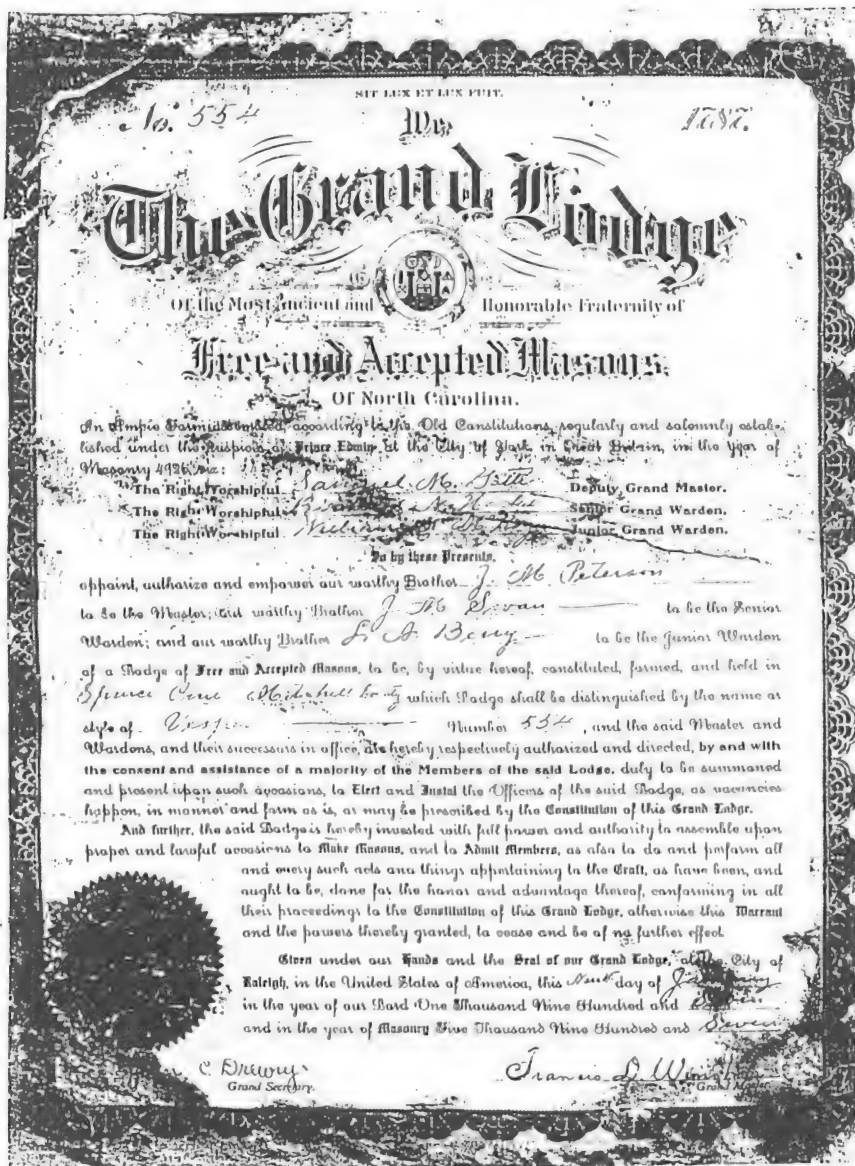 SIT LUX ET LUX FUIT.
No. 554
We,
The Grand Lodge
Of the Most Ancient and Honorable Fraternity of
Free and Accepted Masons,
Of North Carolina.
In Ample Form assembled, according to the Old Constitutions, regularly and solemnly estab-
lished under the auspices of Prince Edwin, at the City of York, in Great Britain, in the year of
Masonry 4926, viz:
The Right Worshipful Samuel M. Deputy Grand Master.
The Right Worshipful Senior Grand Warden.
The Right Worshipful William Junior Grand Warden.
Do by these Presents,
appoint, authorize and empower our worthy Brother J. M. Peterson
to be the Master; our worthy Brother J M to be the Senior
Warden; and our worthy Brother Berry to be the Junior Warden
of a Lodge of Free and Accepted Masons, to be, by virtue hereof, constituted, formed, and held in
Spruce Pine Mitchell which Lodge shall be distinguished by the name or
style of Number 554, and the said Master and
Wardens, and their successors in office, are hereby respectively authorized and directed, by and with
the consent and assistance of a majority of the Members of the said Lodge, duly to be summoned
and present upon such occasions, to Elect and Instal the Officers of the said Lodge, as vacancies
happen, in manner and form as is, or may be prescribed by the Constitution of this Grand Lodge.
And further, the said Lodge is hereby invested with full power and authority to assemble upon
proper and lawful occasions to Make Masons, and to Admit Members, as also to do and perform all
and every such acts and things appertaining to the Craft, as have been, and
ought to be, done for the honor and advantage thereof, conforming in all
their proceedings to the Constitution of this Grand Lodge, otherwise this Warrant
and the powers thereby granted, to cease and be of no further effect
Given under our Hands and the Seal of our Grand Lodge, at the City of
Raleigh, in the United States of America, this day of January
in the year of our Lord One Thousand Nine Hundred and Seven
and in the year of Masonry Five Thousand Nine Hundred and Seven
C. Drewry Francis D. Winston
Grand Secretary. Grand Master.